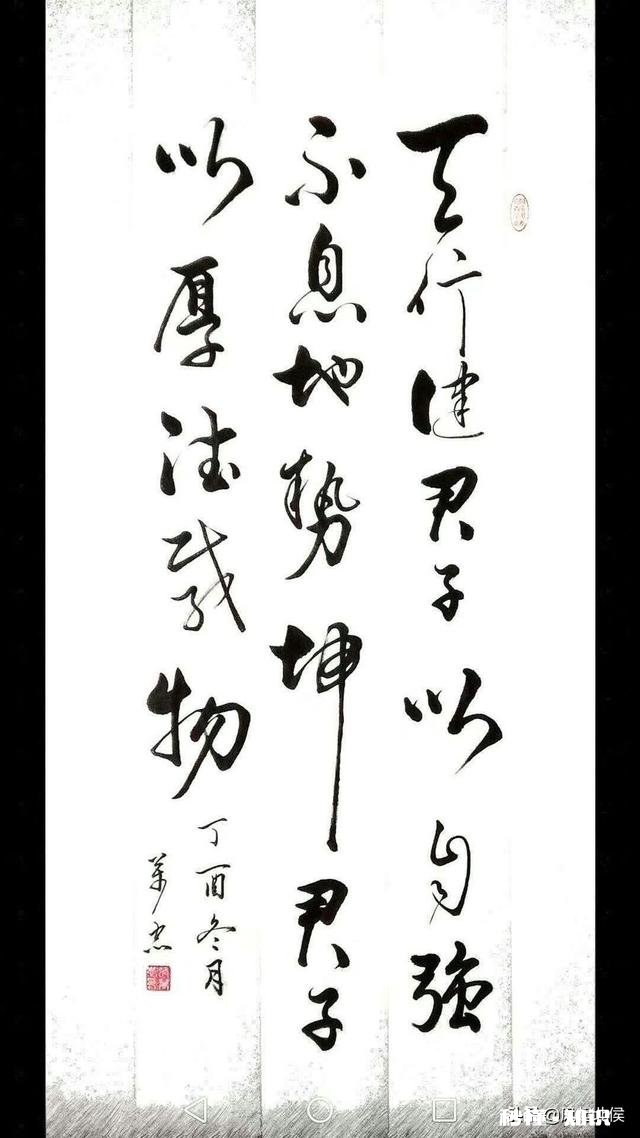 天行健君子以自强
不息地势坤君子
以厚德载物
丁酉冬月